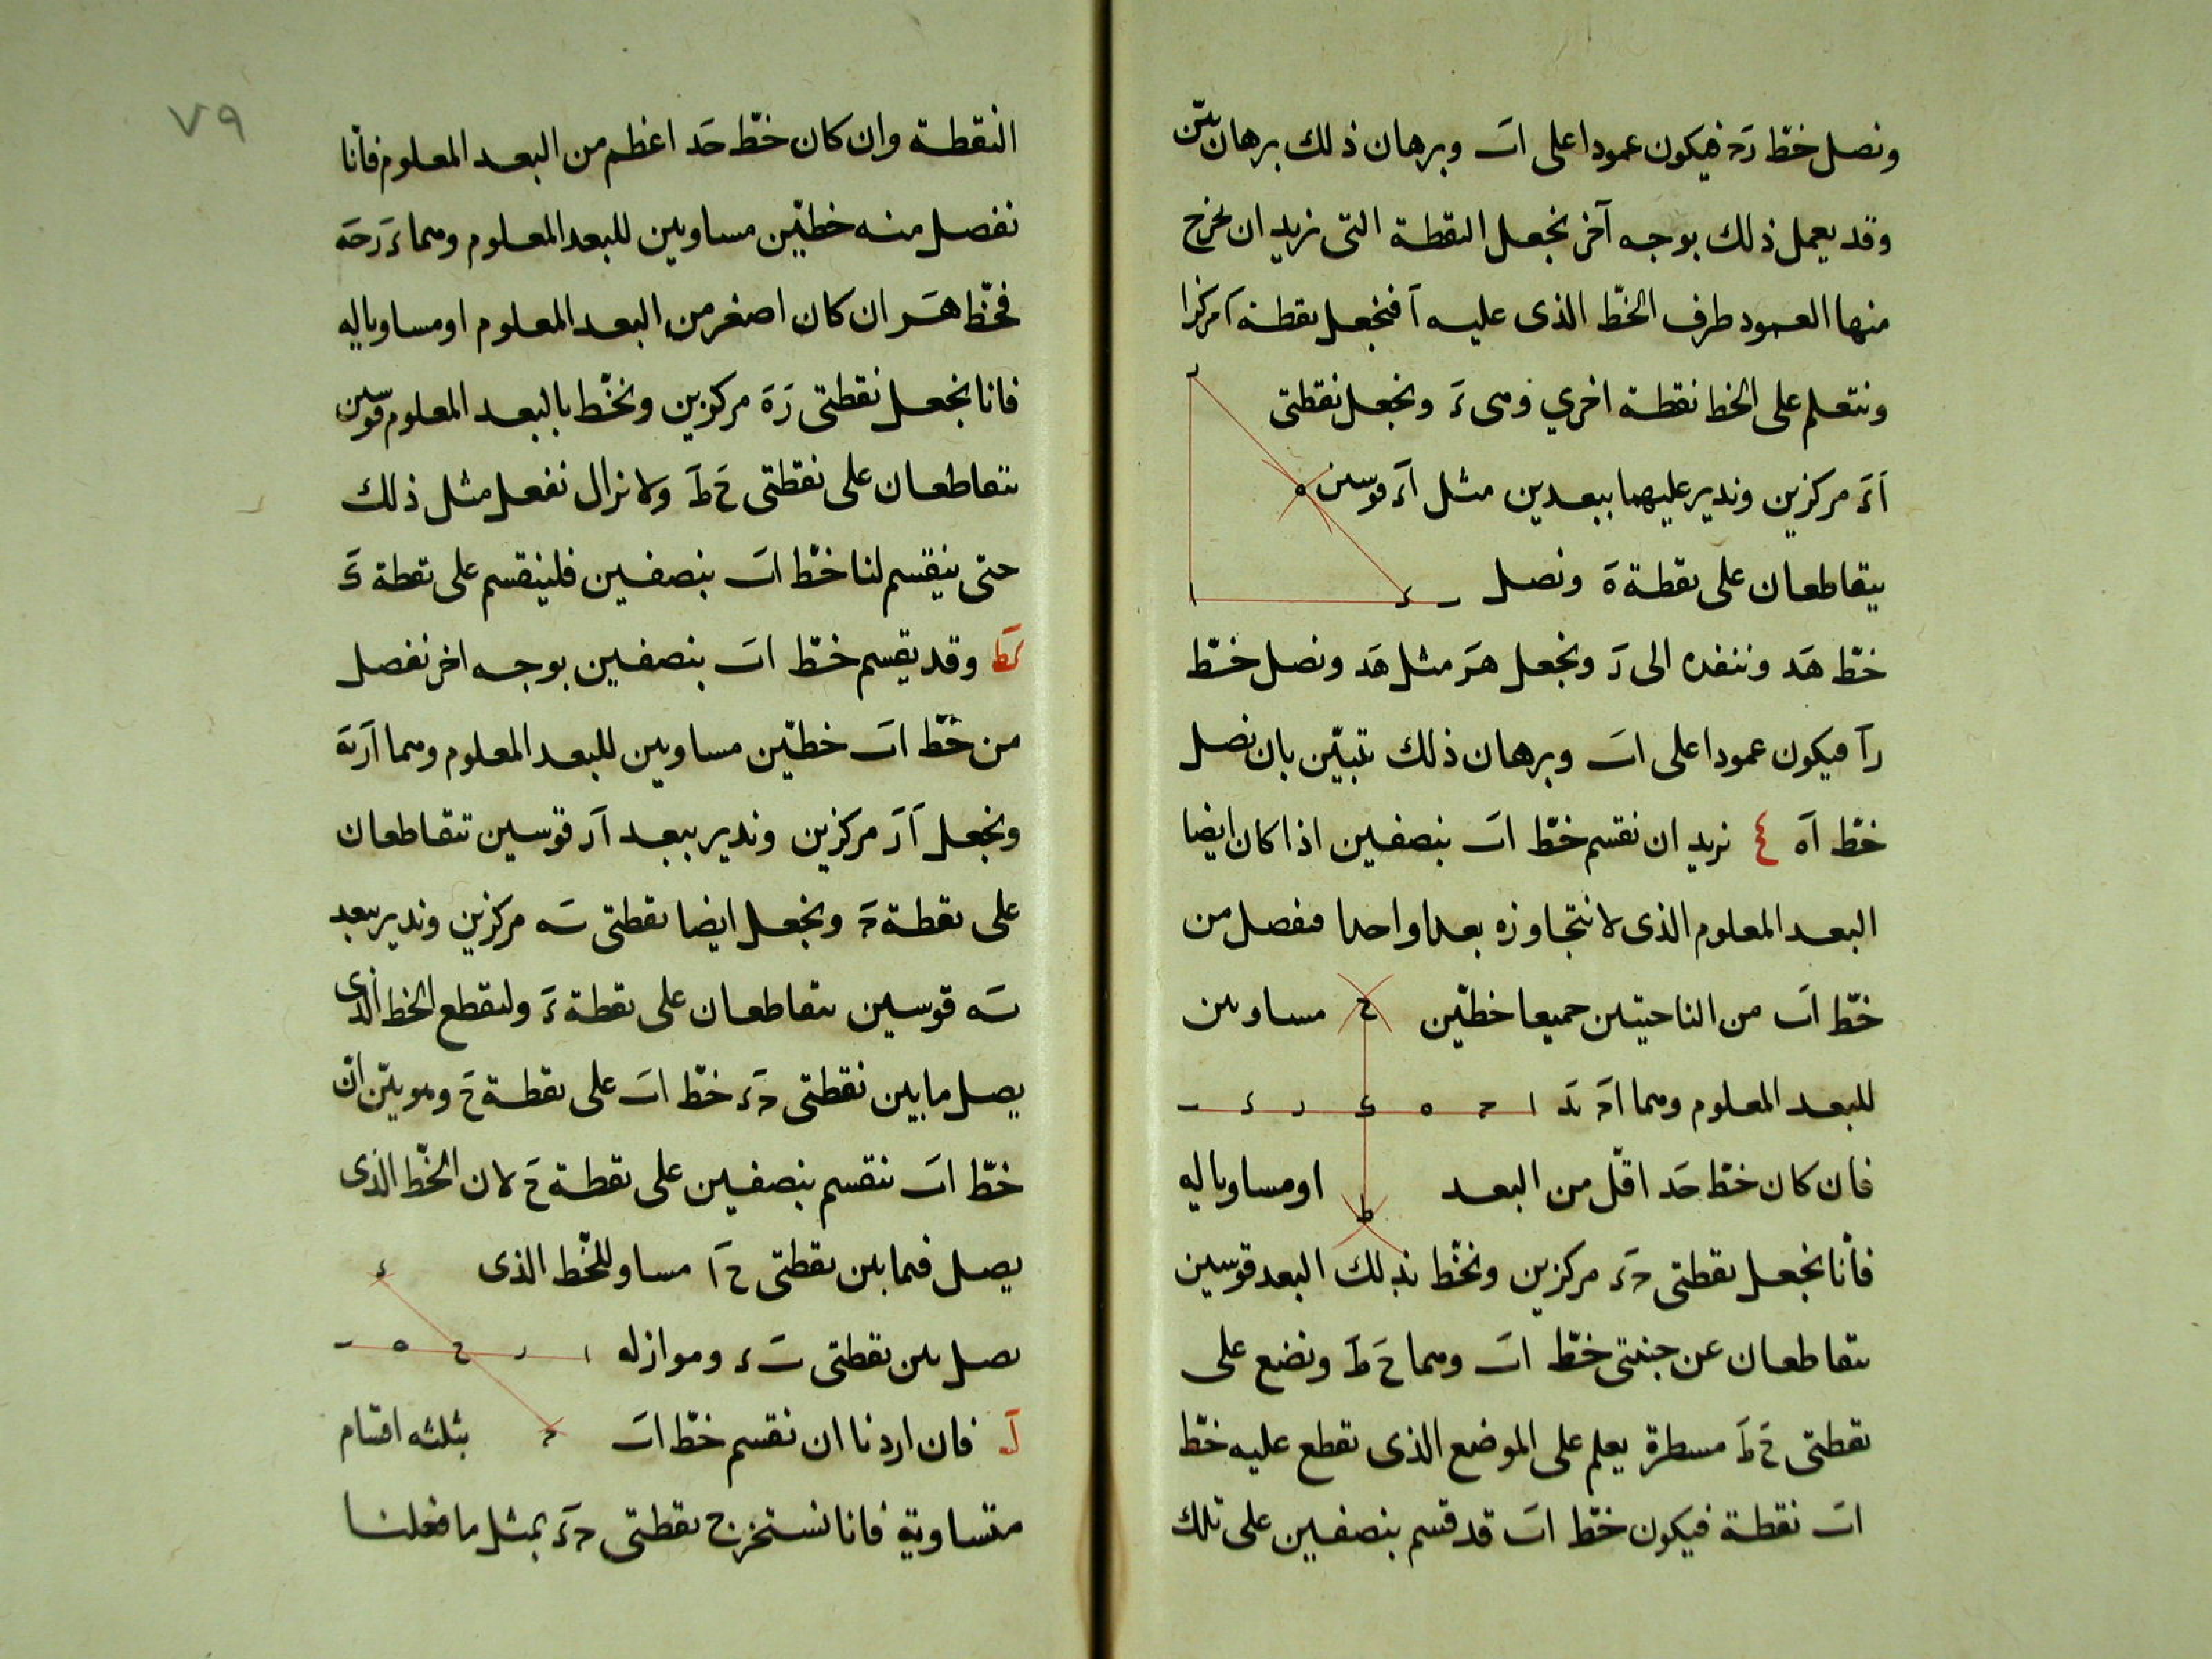 ونصل خطّ رح فيكون عمودا على اب وبرهان ذلك برهان بيّن
وقد يعمل ذلك بوجه آخر نجعل النقطة التى نريد ان نخرج
منها العمود طرف الخطّ الذى عليه آ فنجعل نقطة ا مركزا
ونتعلم على الخط نقطة اخري وهى ء ونجعل نقطتى
اء مركزين وندير عليهما ببعدين مثل اء قوسين
يتقاطعان على نقطة ه ونصل
خطّ هد وننفده الى ر ونجعل هر مثل هد ونصل خطّ
را فيكون عمودا على اب وبرهان ذلك تبيّن بان نصل
خطّ اه ٤ نريد ان نقسم خطّ اب بنصفين اذا كان ايضا
البعد المعلوم الذى لا نتجاوزه بعدا واحدا فنفصل من
خطّ اب من الناحيتين جميعا خطّين مساويين
للبعد المعلوم وهما اح بد
فان كان خطّ حد اقلّ من البعد او مساويا له
فانّا نجعل نقطتى حء مركزين ونخّط بذلك البعد قوسين
يتقاطعان عن جنبتى خطّ اب وهما ح ط ونضع على
نقطتى ح ط مسطرة يعلم على الموضع الذى تقطع عليه خطّ
اب نقطة فيكون خطّ اب قد قسم بنصفين على تلك
٧٩
النقطة وان كان خطّ حد اعظم من البعد المعلوم فانّا
نفصل منه خطيّن مساويين للبعد المعلوم وهما ءر حه
فخطّ هر ان كان اصغر من البعد المعلوم او مساويا له
فانا نجعل نقطتى ر ه مركزين ونخّط بالبعد المعلوم قوسين
تتقاطعان على نقطتى ح ط ولا نزال نفعل مثل ذلك
حتى ينقسم لنا خطّ اب بنصفين فلينقسم على نقطة ى
كط وقد يقسم خطّ اب بنصفين بوجه اخر نفصل
من خطّ اب خطيّن مساويين للبعد المعلوم وهما ار به
ونجعل ا ر مركزين وندير ببعد ار قوسين تتقاطعان
على نقطة ح ونجعل ايضا نقطتى به مركزين وندير ببعد
به قوسين يتقاطعان على نقطة ء وليقطع الخط الذى
يصل ما بين نقطتى حء خطّ اب على نقطة ح وهو بيّن انّ
خطّ اب ينقسم بنصفين على نقطة ح لان الخّط الذى
يصل فيما بين نقطتى ح ا مساو للخّط الذى
يصل بين نقطتى ب ء وموازله
ل فان اردنا ان نقسم خطّ اب بثلثه اقسام
متساوية فانا نستخرج نقطتى حء بمثل ما فعلنا